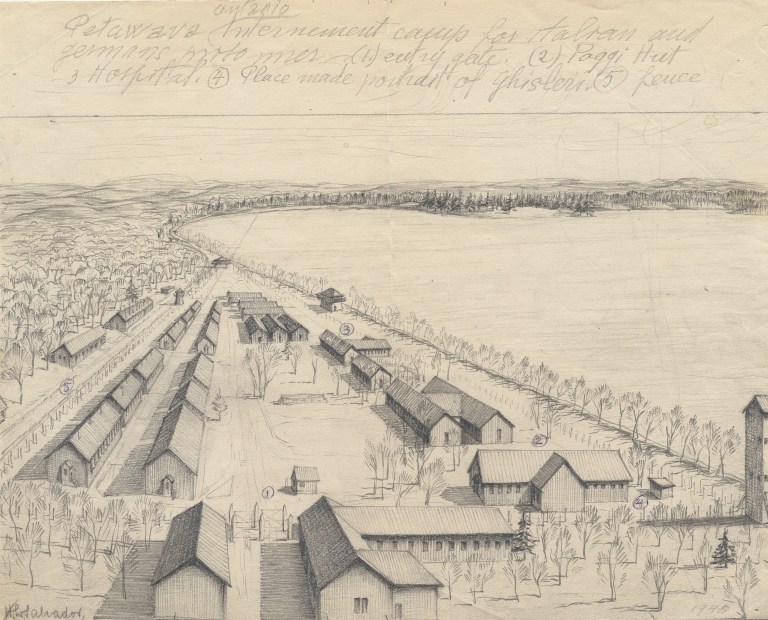 Petawava Internement camp for Italian and
germans (1) entry gate. (2) Poggi Hut
3 Hospital. (4) Place made portrait of Ghisleri. (5) Fence
3
5
2
1
4
1940